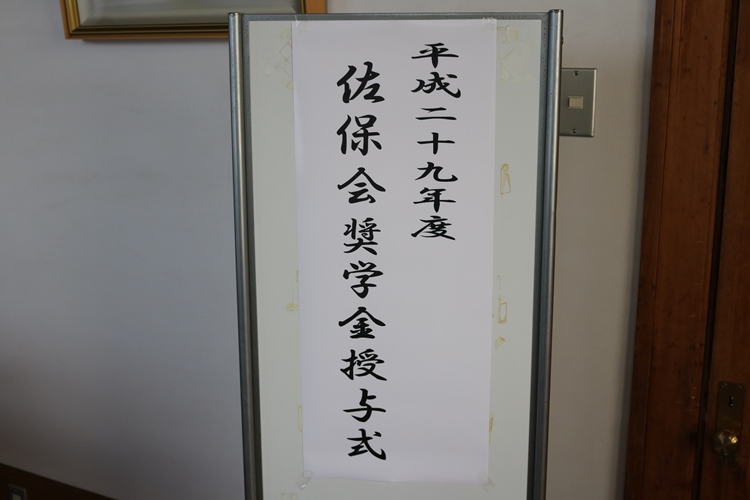 平成二十九年度
佐保会奨学金授与式